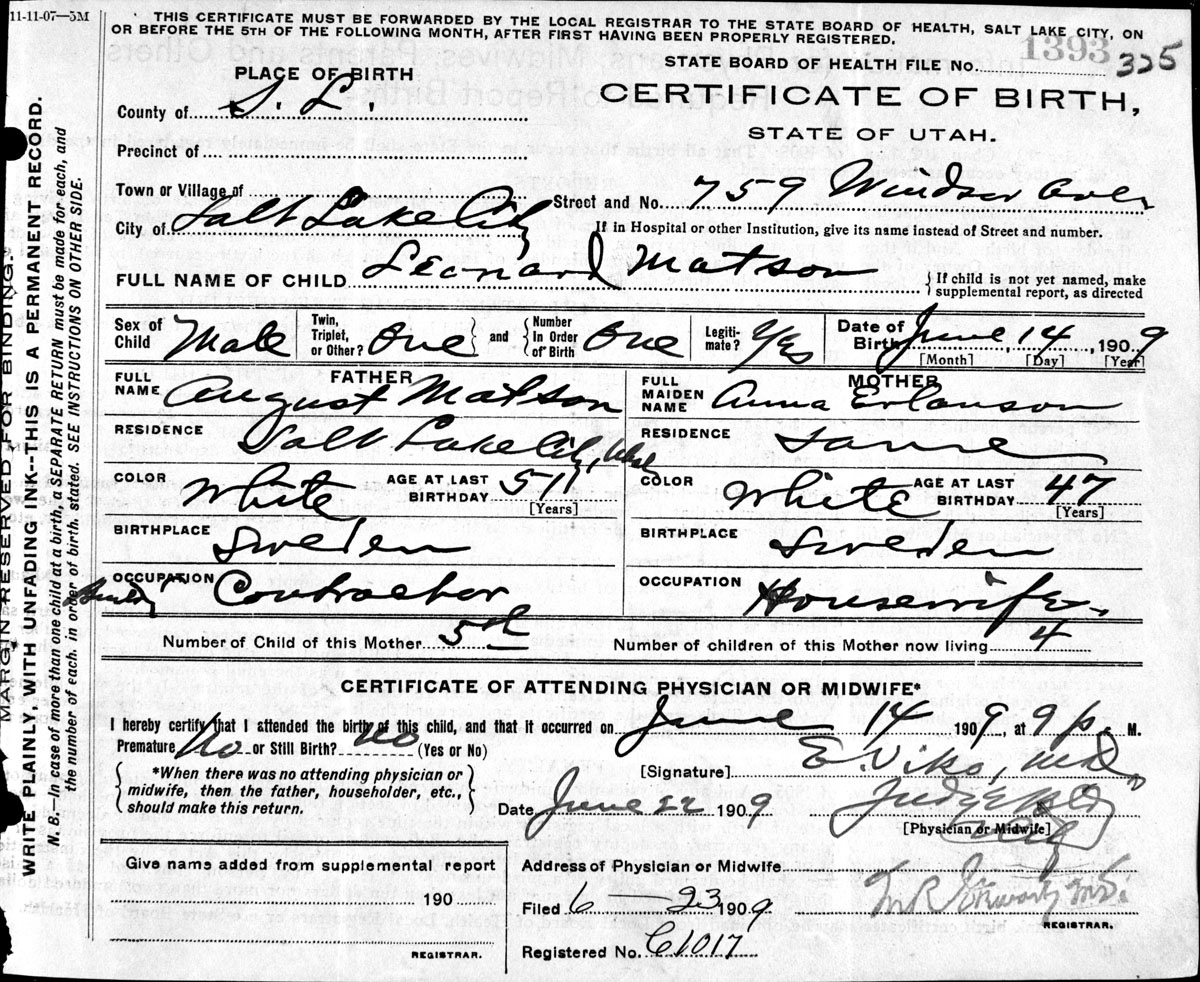 11-11-07—5M
THIS CERTIFICATE MUST BE FORWARDED BY THE LOCAL REGISTRAR TO THE STATE BOARD OF HEALTH, SALT LAKE CITY, ON
OR BEFORE THE 5TH OF THE FOLLOWING MONTH, AFTER FIRST HAVING BEEN PROPERLY REGISTERED.
1393
STATE BOARD OF HEALTH FILE No. 325
PLACE OF BIRTH
CERTIFICATE OF BIRTH,
County of S. L.
STATE OF UTAH.
Precinct of
Town or Village of
Street and No. 759 Windsor Ave
City of Salt Lake City
If in Hospital or other Institution, give its name instead of Street and number.
FULL NAME OF CHILD Leonard Matson
If child is not yet named, make
supplemental report, as directed
Sex of Child Male
Twin, Triplet, or Other? One
and
Number In Order of Birth One
Legitimate? Yes
Date of Birth June 14, 1909
[Month] [Day] [Year]
FATHER
FULL NAME August Matson
RESIDENCE Salt Lake City, Utah
COLOR White
AGE AT LAST BIRTHDAY 51
[Years]
BIRTHPLACE Sweden
OCCUPATION Contractor
MOTHER
FULL MAIDEN NAME Anna Erlanson
RESIDENCE Same
COLOR White
AGE AT LAST BIRTHDAY 47
[Years]
BIRTHPLACE Sweden
OCCUPATION Housewife
Number of Child of this Mother 5th
Number of children of this Mother now living 4
CERTIFICATE OF ATTENDING PHYSICIAN OR MIDWIFE*
I hereby certify that I attended the birth of this child, and that it occurred on June 14 1909, at 9 p. M.
Premature No or Still Birth? No (Yes or No)
*When there was no attending physician or
midwife, then the father, householder, etc.,
should make this return.
[Signature] E. Viko, M.D.
Date June 22 1909
Judge Bld
[Physician or Midwife]
City
Give name added from supplemental report
190
REGISTRAR.
Address of Physician or Midwife
Filed 6 23 1909
M.R. Stewart M.D.
REGISTRAR.
Registered No. C1017
MARGIN RESERVED FOR BINDING.
WRITE PLAINLY, WITH UNFADING INK--THIS IS A PERMANENT RECORD.
N. B.—In case of more than one child at a birth, a SEPARATE RETURN must be made for each, and
the number of each, in order of birth, stated. SEE INSTRUCTIONS ON OTHER SIDE.